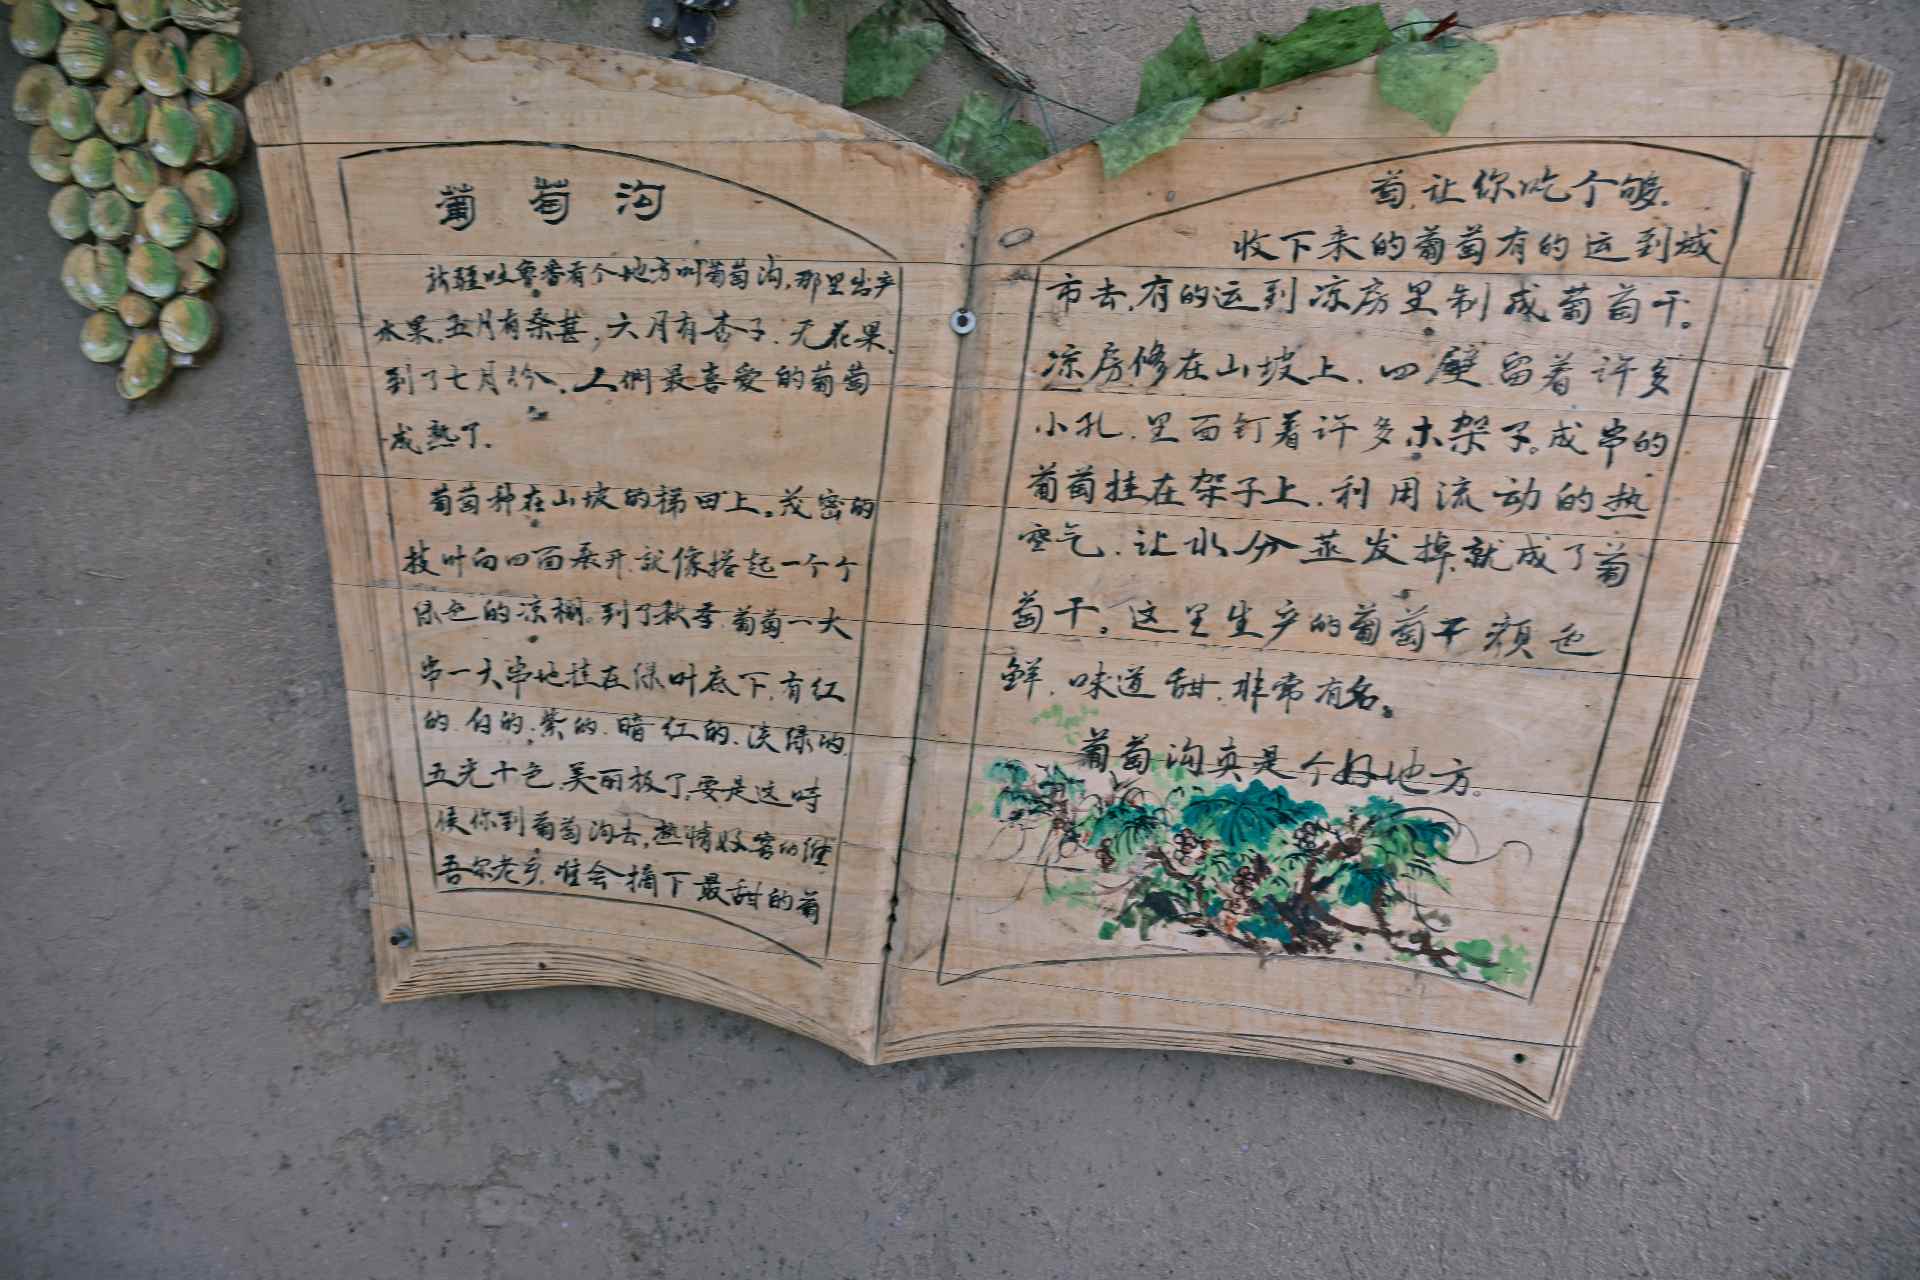 葡萄沟
新疆吐鲁番有个地方叫葡萄沟，那里出产
水果。五月有桑葚，六月有杏子，无花果，
到了七月份，人們最喜爱的葡萄
成熟了。
葡萄种在山坡的梯田上。茂密的
枝叶向四面展开，就像搭起一个个
绿色的凉棚。到了秋季，葡萄一大
串一大串地挂在绿叶底下，有红
的、白的、紫的、暗红的、淡绿的，
五光十色，美丽极了。要是这时
候你到葡萄沟去，热情好客的维
吾尔老乡，准会摘下最甜的葡
萄，让你吃个够。
收下来的葡萄有的运到城
市去，有的运到凉房里制成葡萄干。
凉房修在山坡上，四壁留着许多
小孔，里面钉着许多木架子。成串的
葡萄挂在架子上，利用流动的热
空气，让水分蒸发掉，就成了葡
萄干。这里生产的葡萄干颜色
鲜，味道甜，非常有名。
葡萄沟真是个好地方。